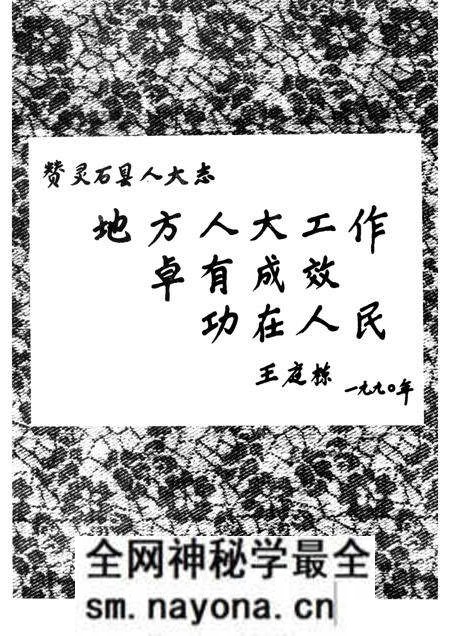 赞灵石县人大志
地方人大工作
卓有成效
功在人民
王庭栋
一九九〇年
全网神秘学最全
sm.nayona.cn